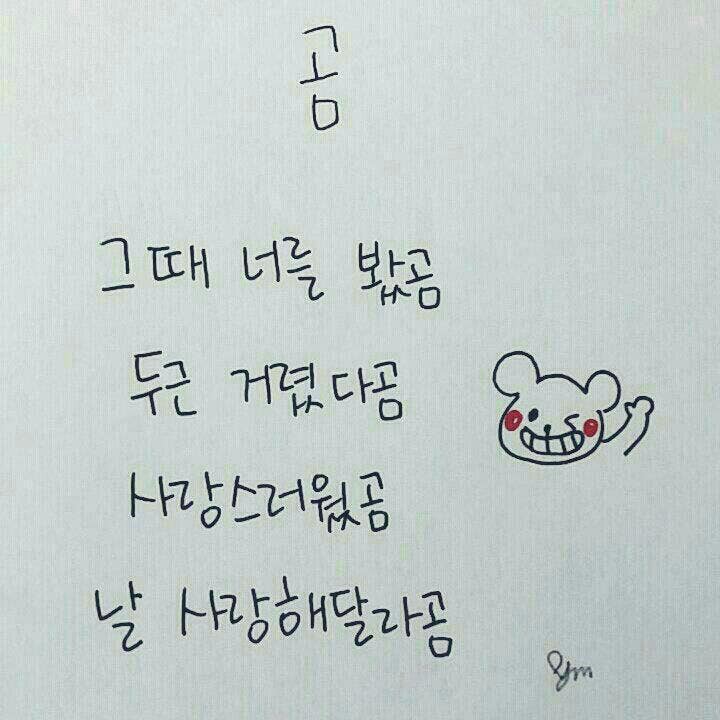 곰
그때 너를 봤곰
두근 거렸다곰
사랑스러웠곰
날 사랑해달라곰
Ym